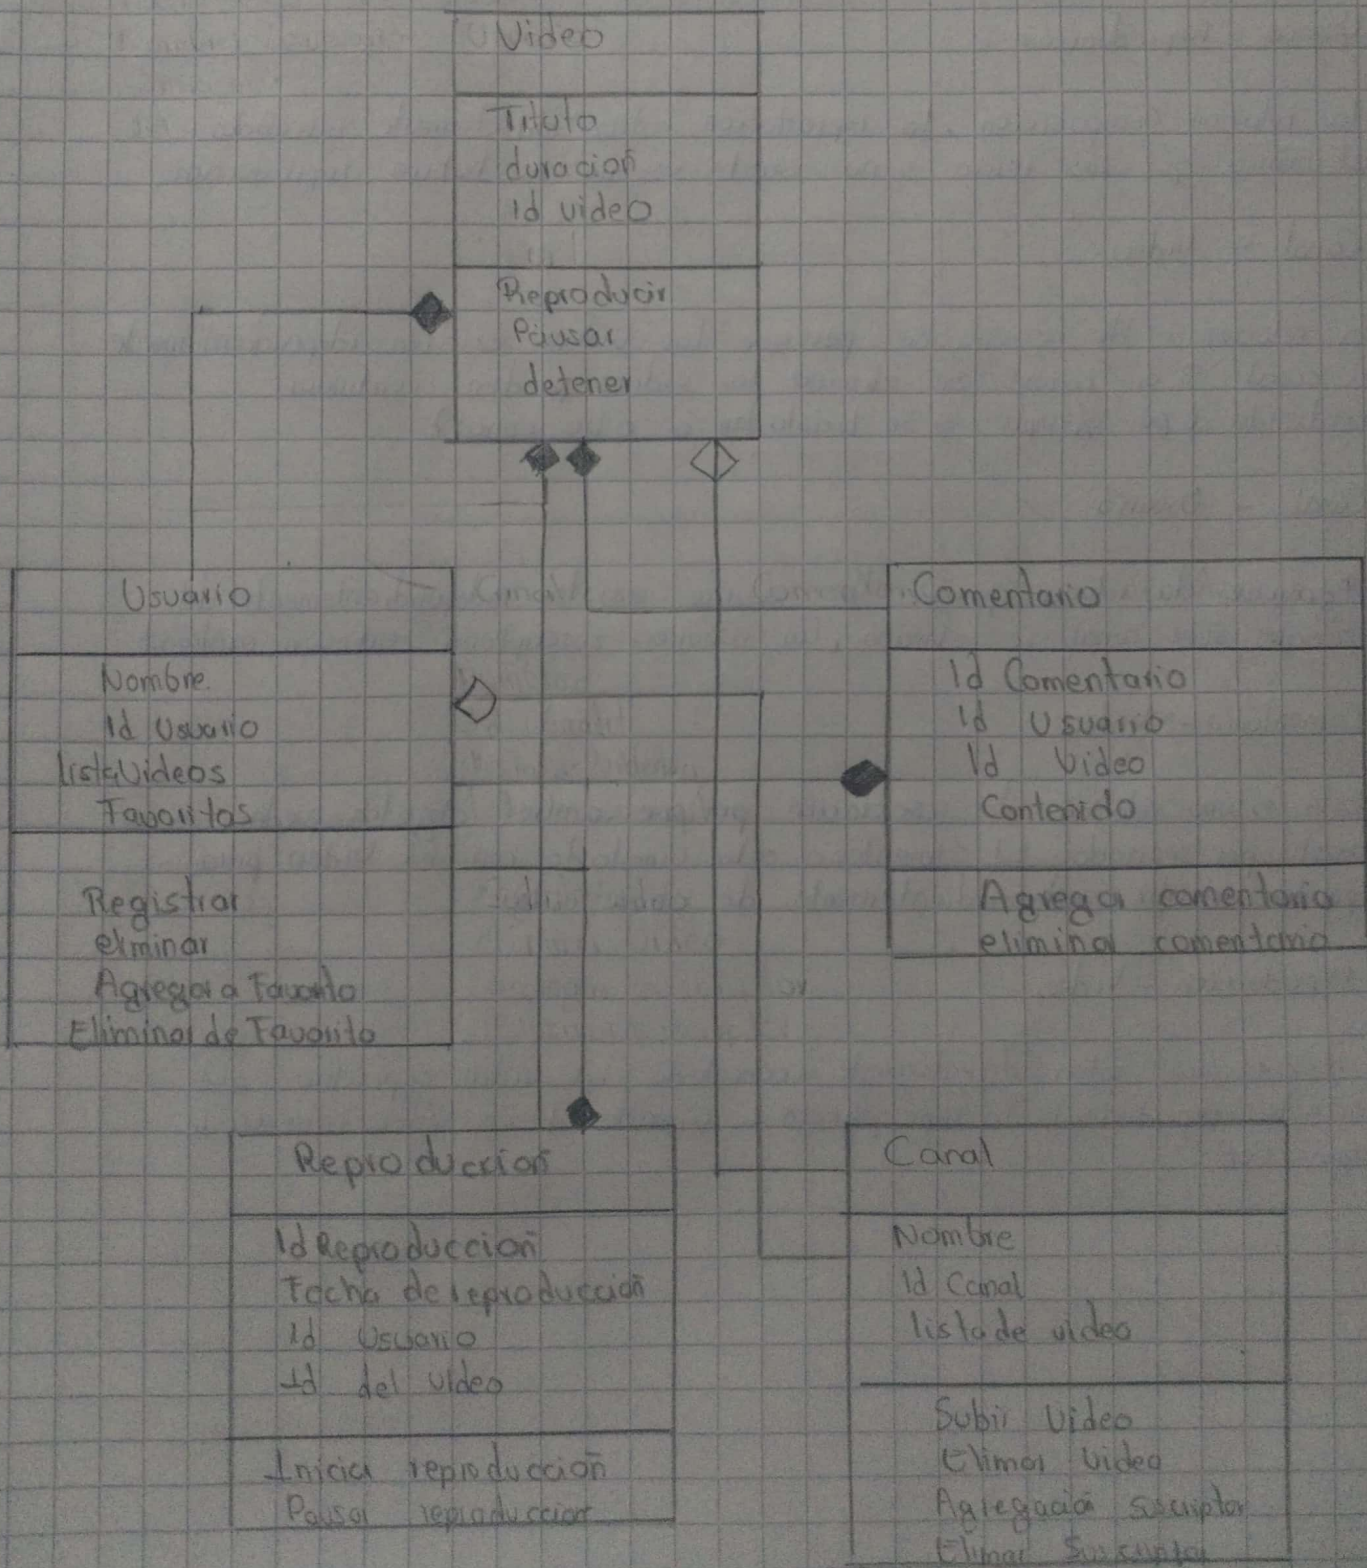 Video
Titulo
duracion
Id video
Reproducir
Pausar
detener
Usuario
Nombre
Id Usuario
listaVideos
Favoritos
Registrar
eliminar
Agregar a Favorito
Eliminar de Favorito
Comentario
Id Comentario
Id Usuario
Id Video
Contenido
Agregar comentario
eliminar comentario
Reproduccion
Id Reproduccion
Fecha de reproduccion
Id Usuario
Id del video
Inicia reproduccion
Pausar reproduccion
Canal
Nombre
Id Canal
lista de video
Subir Video
Elimar video
Agregacia suscriptor
Elimar Suscriptor